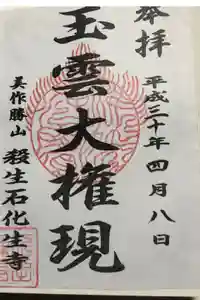 奉拝
平成三十年四月八日
玉雲大権現
美作勝山
殺生石化生寺